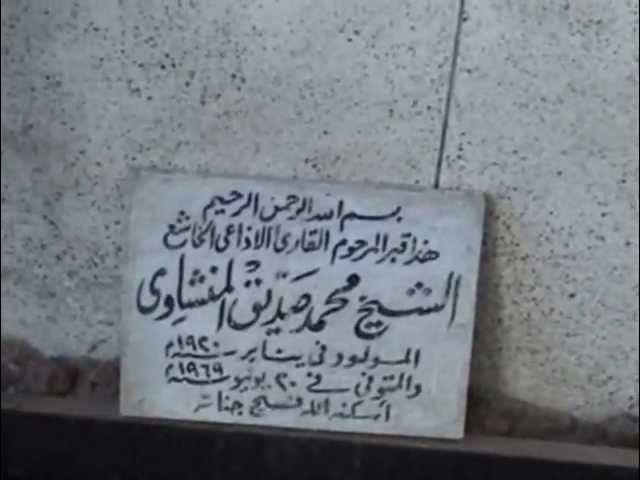 بسم الله الرحمن الرحيم
هذا قبر المرحوم القارئ الاذاعى الخاشع
الشيخ محمد صدّيق المنشاوى
المولود فى يناير سنة ١٩٢٠م
والمتوفى فى ٢٠ يونيو سنة ١٩٦٩م
اسكنه الله فسيح جناته